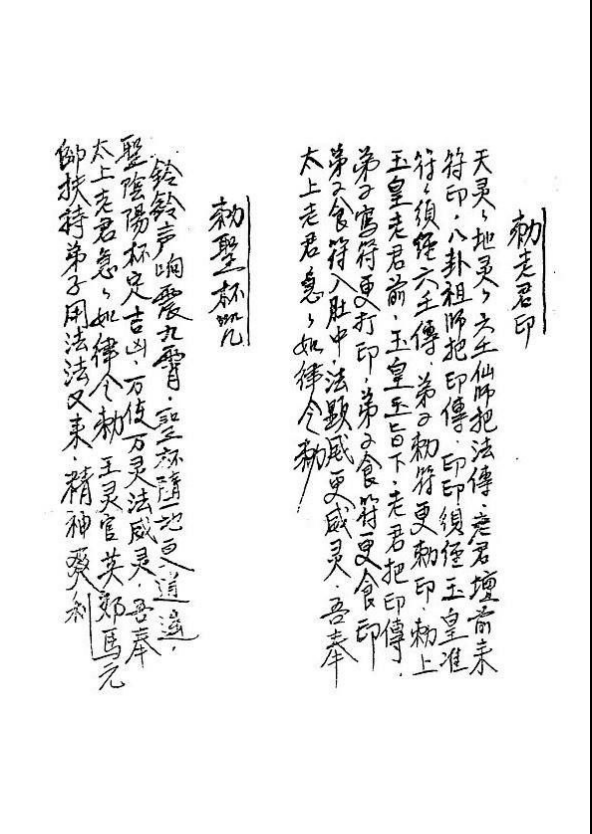 勅老君印
天灵々地灵々六壬仙師把法傳、老君壇前来
符印、八卦祖師把印傳、印印須經玉皇准
符々須經六壬傳、弟子勅符更勅印、勅上
玉皇老君前、玉皇玉旨下、老君把印傳、
弟子寫符更打印、弟子食符更食印
弟子食符入肚中、法顯威更威灵、吾奉
太上老君急々如律令勅
勅聖杯咒
鈴鈴声响震九霄、聖杯隨地更逍遥、
聖陰陽杯定吉凶、万使万灵法威灵、吾奉
太上老君急々如律令勅 王灵官英郊馬元
師扶持弟子用法法又来、精神爽利